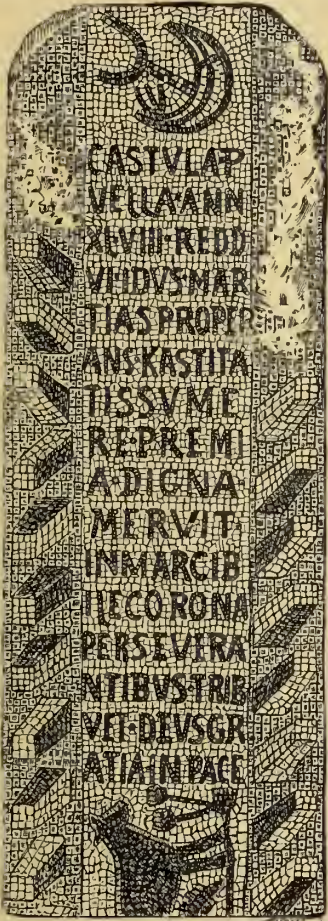 CASTVLA·P
VELLA·ANN
XLVIII·REDD
VI·IDVS MAR
TIAS PROPER
ANS KASTITA
TIS SVME
RE·PREMI
A·DIGNA
MERVIT
INMARCIB
ILE CORONA
PERSEVERA
NTIBVS·TRIB
VET·DEVS GR
ATIA IN PACE